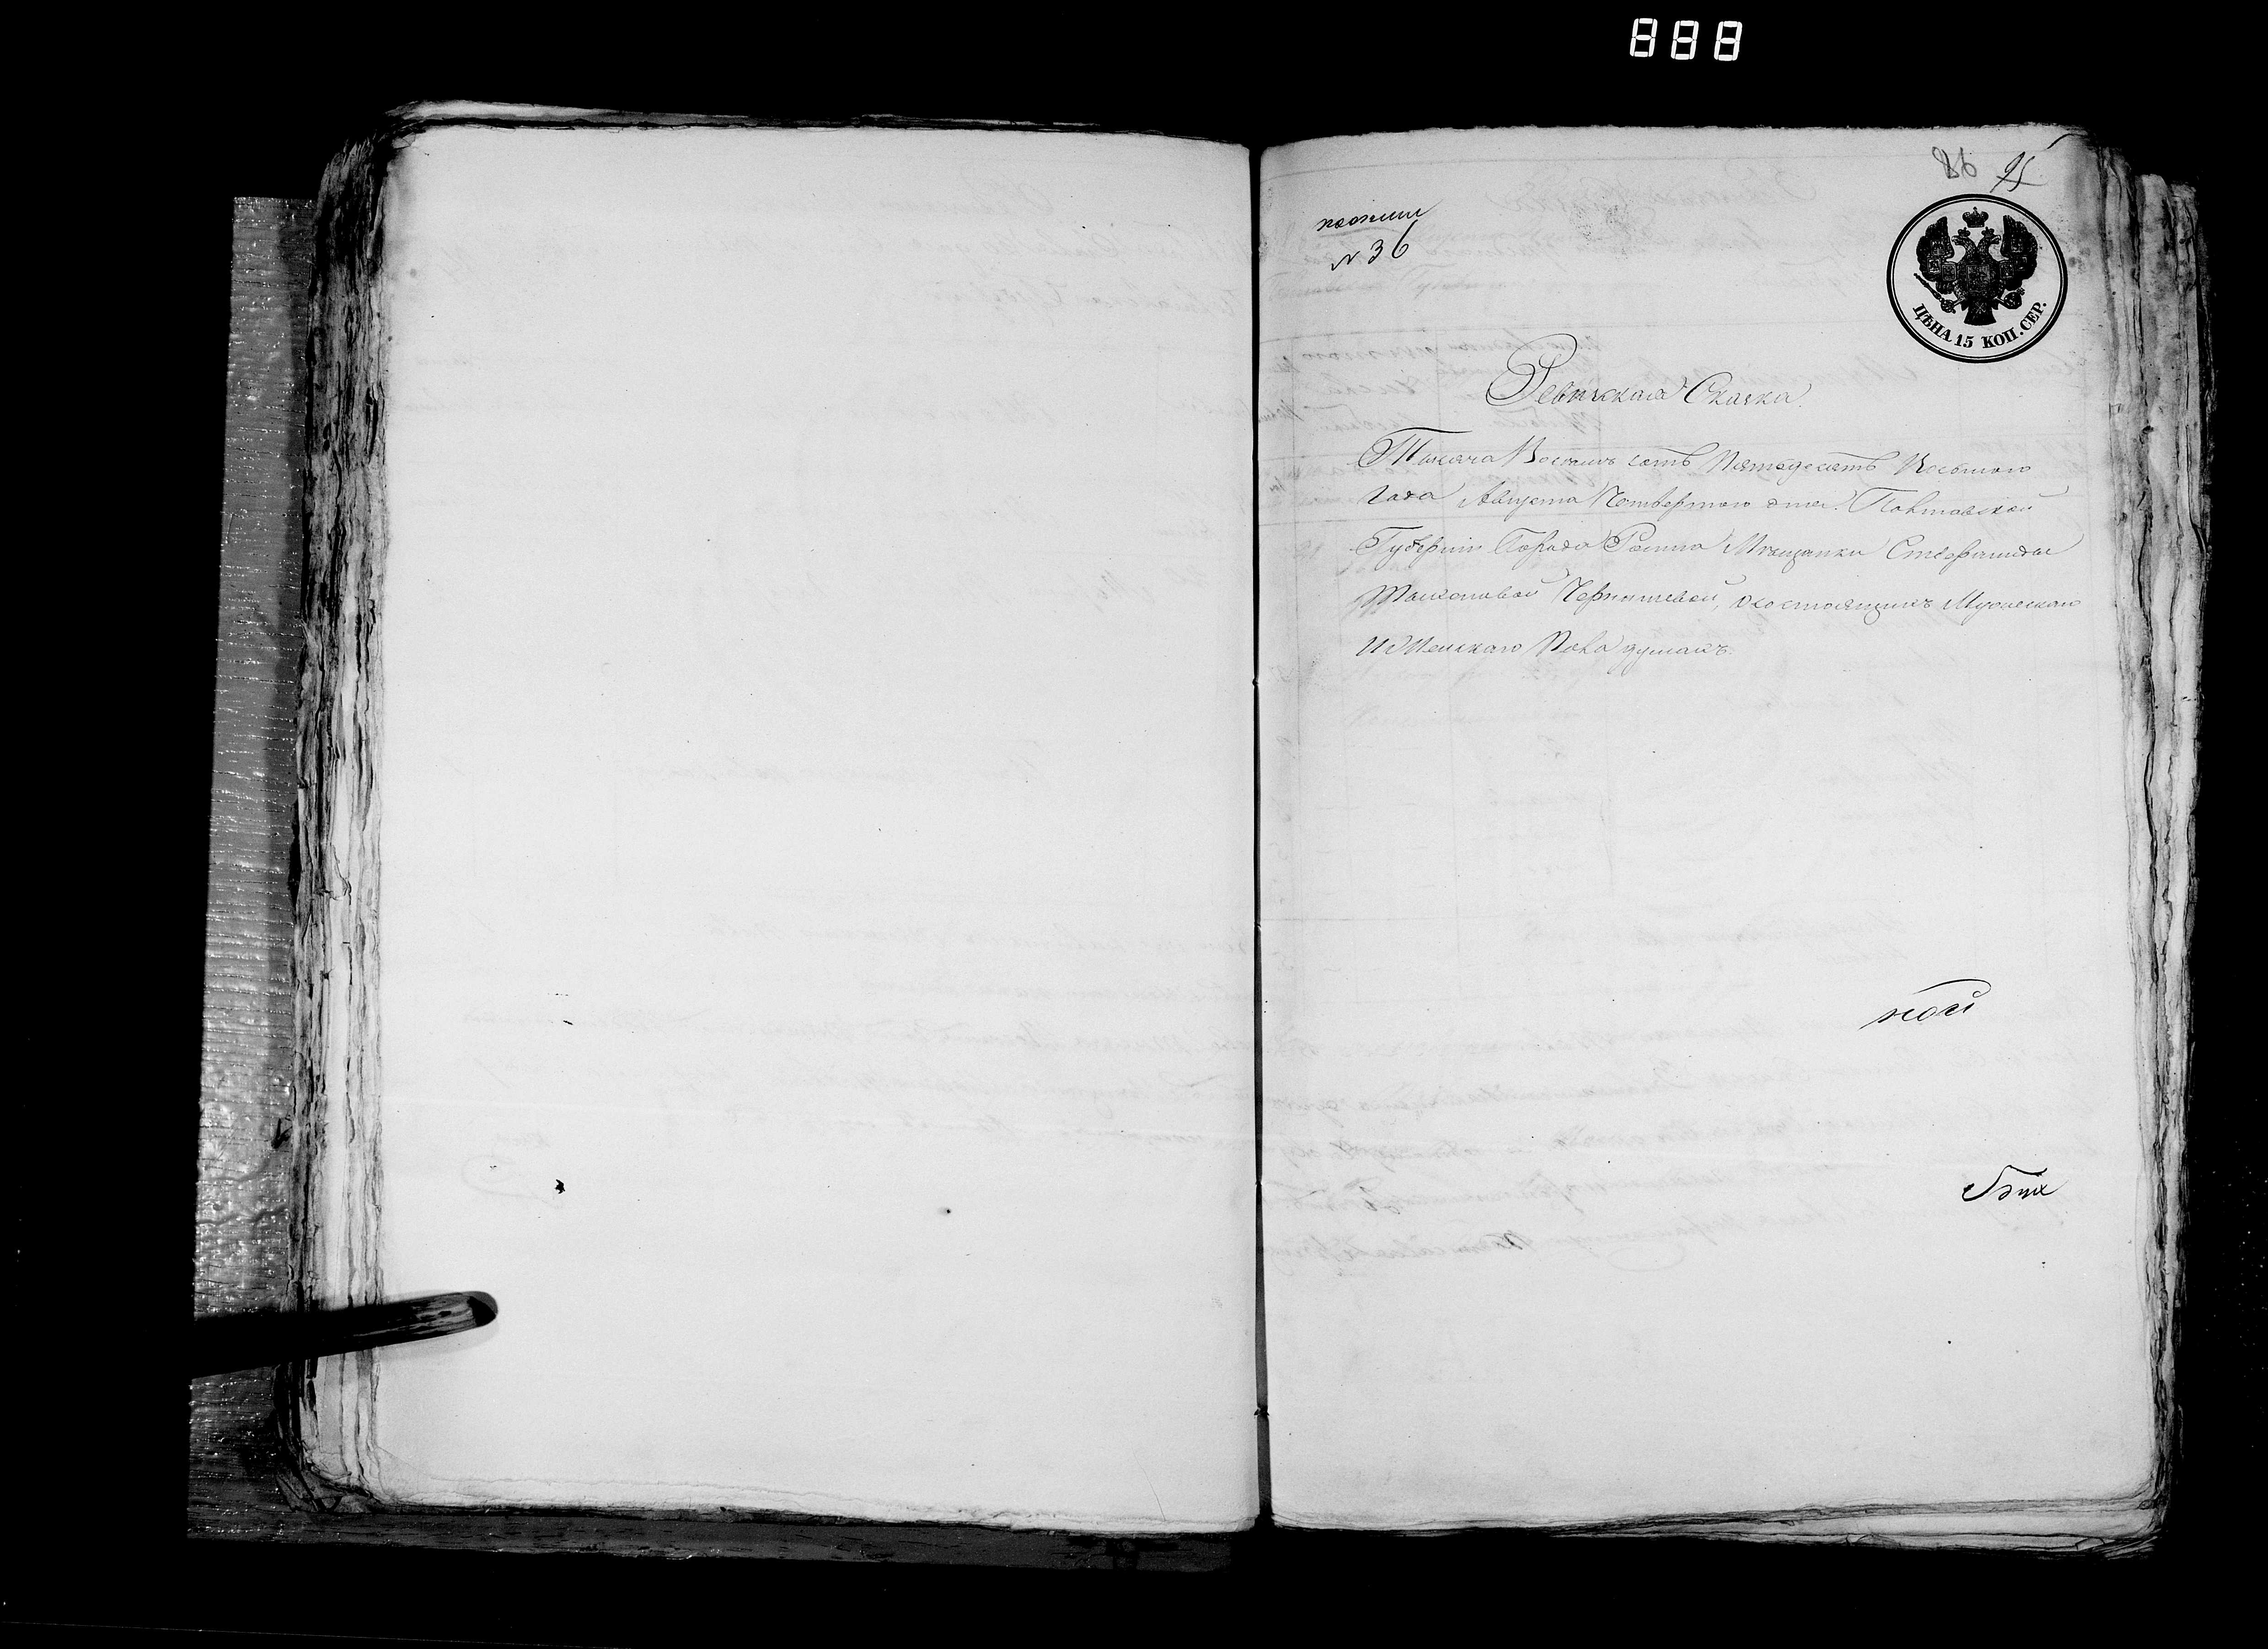 888
86 95
№ 36
ЦѢНА 15 КОП. СЕР.
Ревизская Сказка.
Тысяча Восемь сотъ Пятьдесятъ Восьмого
Года Августа Четвертого дня. Полтавской
Губерніи Города Ромна Мѣщанки Стефаниды
Чернышевой, о состоящихъ Мужескаго
И Женскаго Пола душахъ.